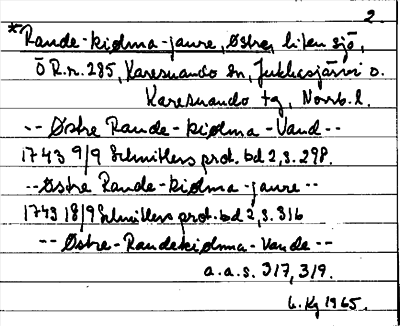 2.
*Rande-kiolma-jaure, Østre, liten sjö,
Ö R.n. 285, Karesuando sn, Jukkasjärvi o.
Karesuando tg, Norrb. l.
-- Østre Rande-kiolma-Vand --
1743 9/9 Schnitlers prot. bd 2, s. 298.
-- Østre Rande-kiolma-jaure --
1743 18/9 Schnitlers prot. bd 2, s. 316
-- Østre-Randekiolma-Vande --
a.a.s. 317, 319.
Kg 1965.